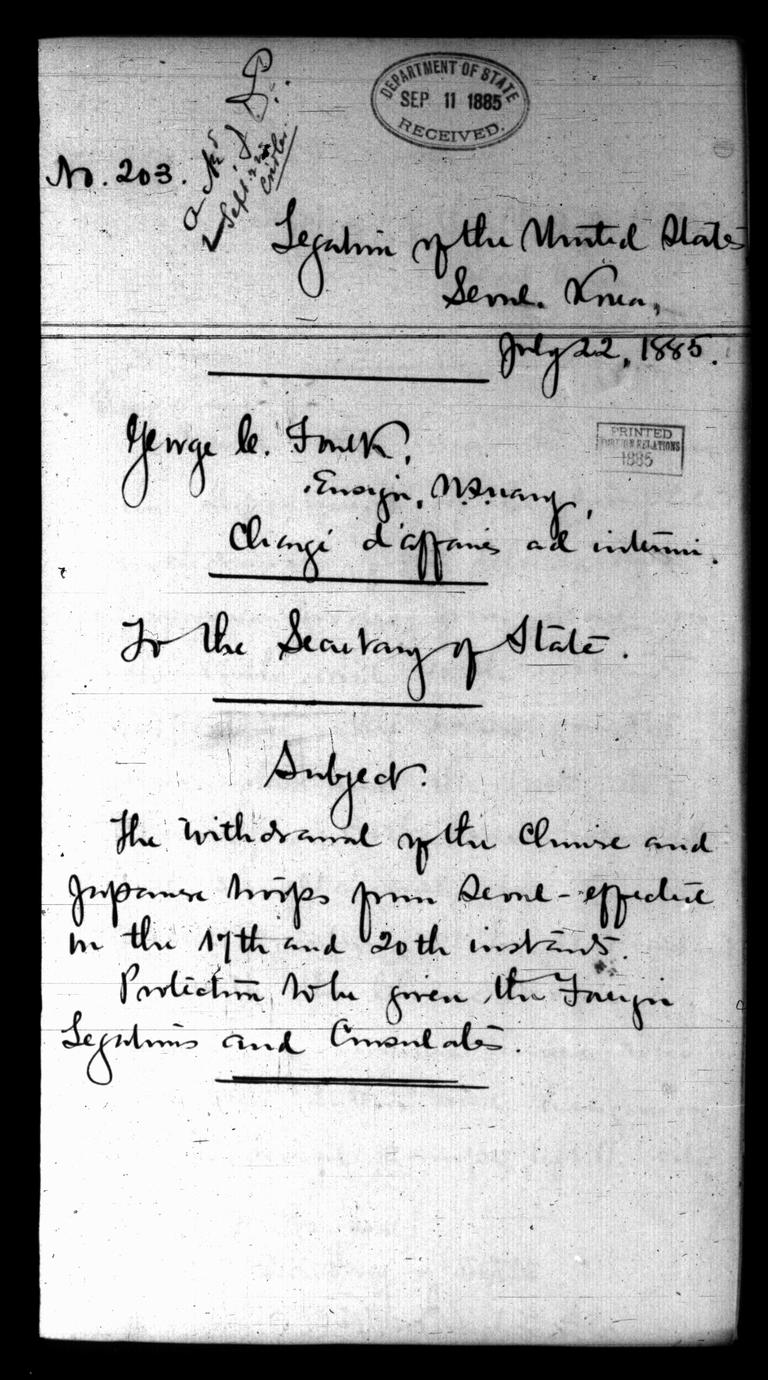 DEPARTMENT OF STATE
SEP 11 1885
RECEIVED.
No. 203.
Legation of the United States
Seoul. Korea,
July 22, 1885.
PRINTED
FOREIGN RELATIONS
1885
George C. Foulk,
Ensign, U.S. navy,
Chargé d'affaires ad interim.
To the Secretary of State.
Subject.
The withdrawal of the Chinese and
Japanese troops from Seoul - effected
on the 19th and 20th instants.
Protection to be given the Foreign
Legations and Consulates.